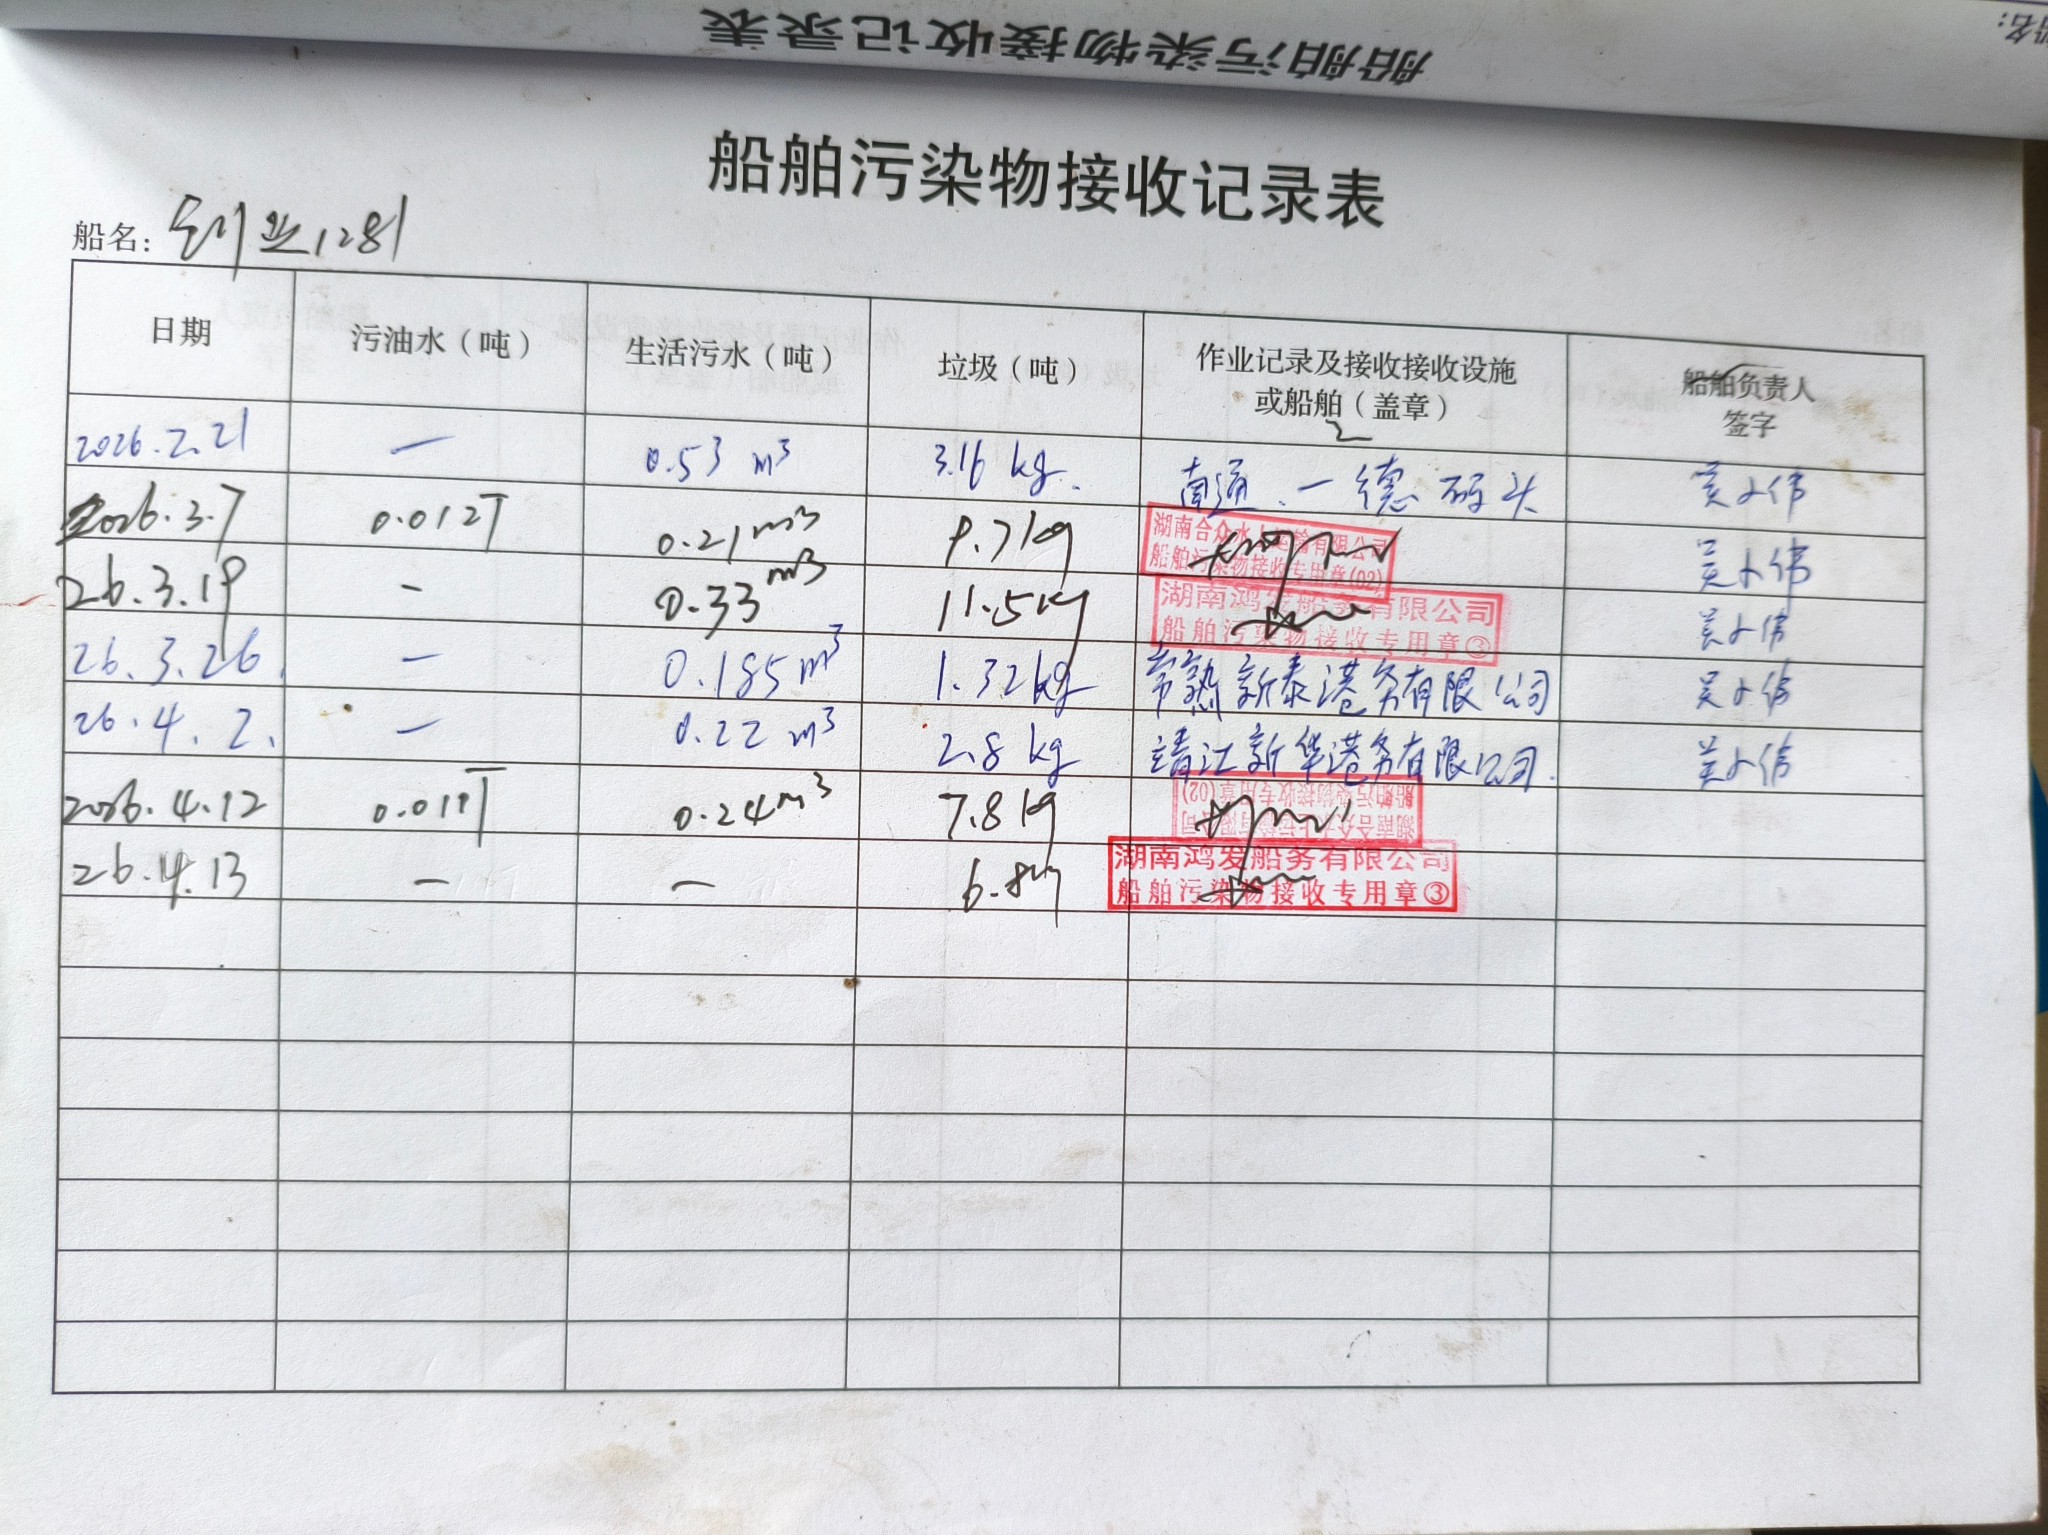 船舶污染物接收记录表
船名:
船舶污染物接收记录表
船名: 创业1281
日期 污油水（吨） 生活污水（吨） 垃圾（吨） 作业记录及接收接收设施 船舶负责人
或船舶（盖章） 签字
2026.2.21 — 0.53 m³ 3.16 kg. 南通.一德码头
2026.3.7 0.012T 0.21m³ 9.7kg 湖南合众水上运输有限公司
船舶污染物接收专用章(02)
26.3.19 - 0.33m³ 11.5kg 湖南鸿发船务有限公司
船舶污染物接收专用章③
26.3.26. — 0.185m³ 1.32kg 常熟新泰港务有限公司
26.4.2. — 0.22 m³ 2.8 kg 靖江新华港务有限公司.
2026.4.12 0.011T 0.24m³ 7.8kg 湖南合众水上运输有限公司
船舶污染物接收专用章(02)
26.4.13 — — 6.8kg 湖南鸿发船务有限公司
船舶污染物接收专用章③